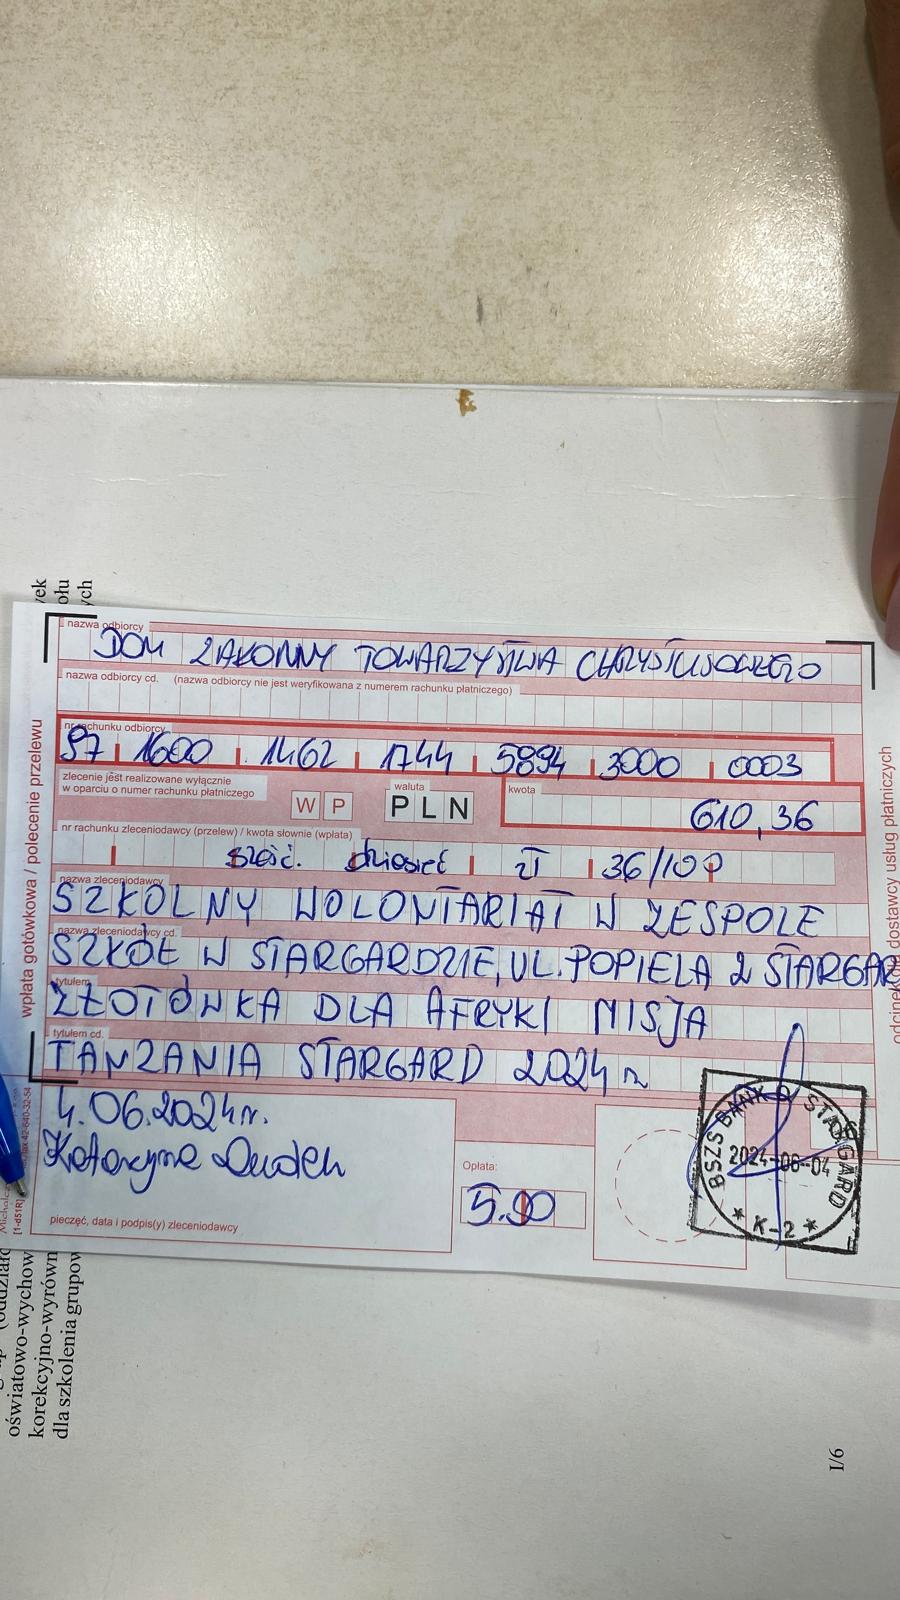 nazwa odbiorcy
DOM ZAKONNY TOWARZYSTWA CHRYSTUSOWEGO
nazwa odbiorcy cd. (nazwa odbiorcy nie jest weryfikowana z numerem rachunku płatniczego)
nr rachunku odbiorcy
97 1600 1462 1744 5894 3000 0003
zlecenie jest realizowane wyłącznie
w oparciu o numer rachunku płatniczego
W P
waluta
PLN
kwota
610,36
nr rachunku zleceniodawcy (przelew) / kwota słownie (wpłata)
sześć. dziesięć zł 36/100
nazwa zleceniodawcy
SZKOLNY WOLONTARIAT W ZESPOLE
nazwa zleceniodawcy cd.
SZKÓŁ W STARGARDZIE, UL. POPIELA 2 STARGAR
tytułem
ZŁOTÓWKA DLA AFRYKI MISJA
tytułem cd.
TANZANIA STARGARD 2024 r
4.06.2024r.
Katarzyna Duden
pieczęć, data i podpis(y) zleceniodawcy
Opłata:
5.90
BSZS BANK STARGARD
2024-06-04
* K-2 *
wpłata gotówkowa / polecenie przelewu
dostawcy usług płatniczych
oświatowo-wychow
korekcyjno-wyrówn
dla szkolenia grupow
I/6